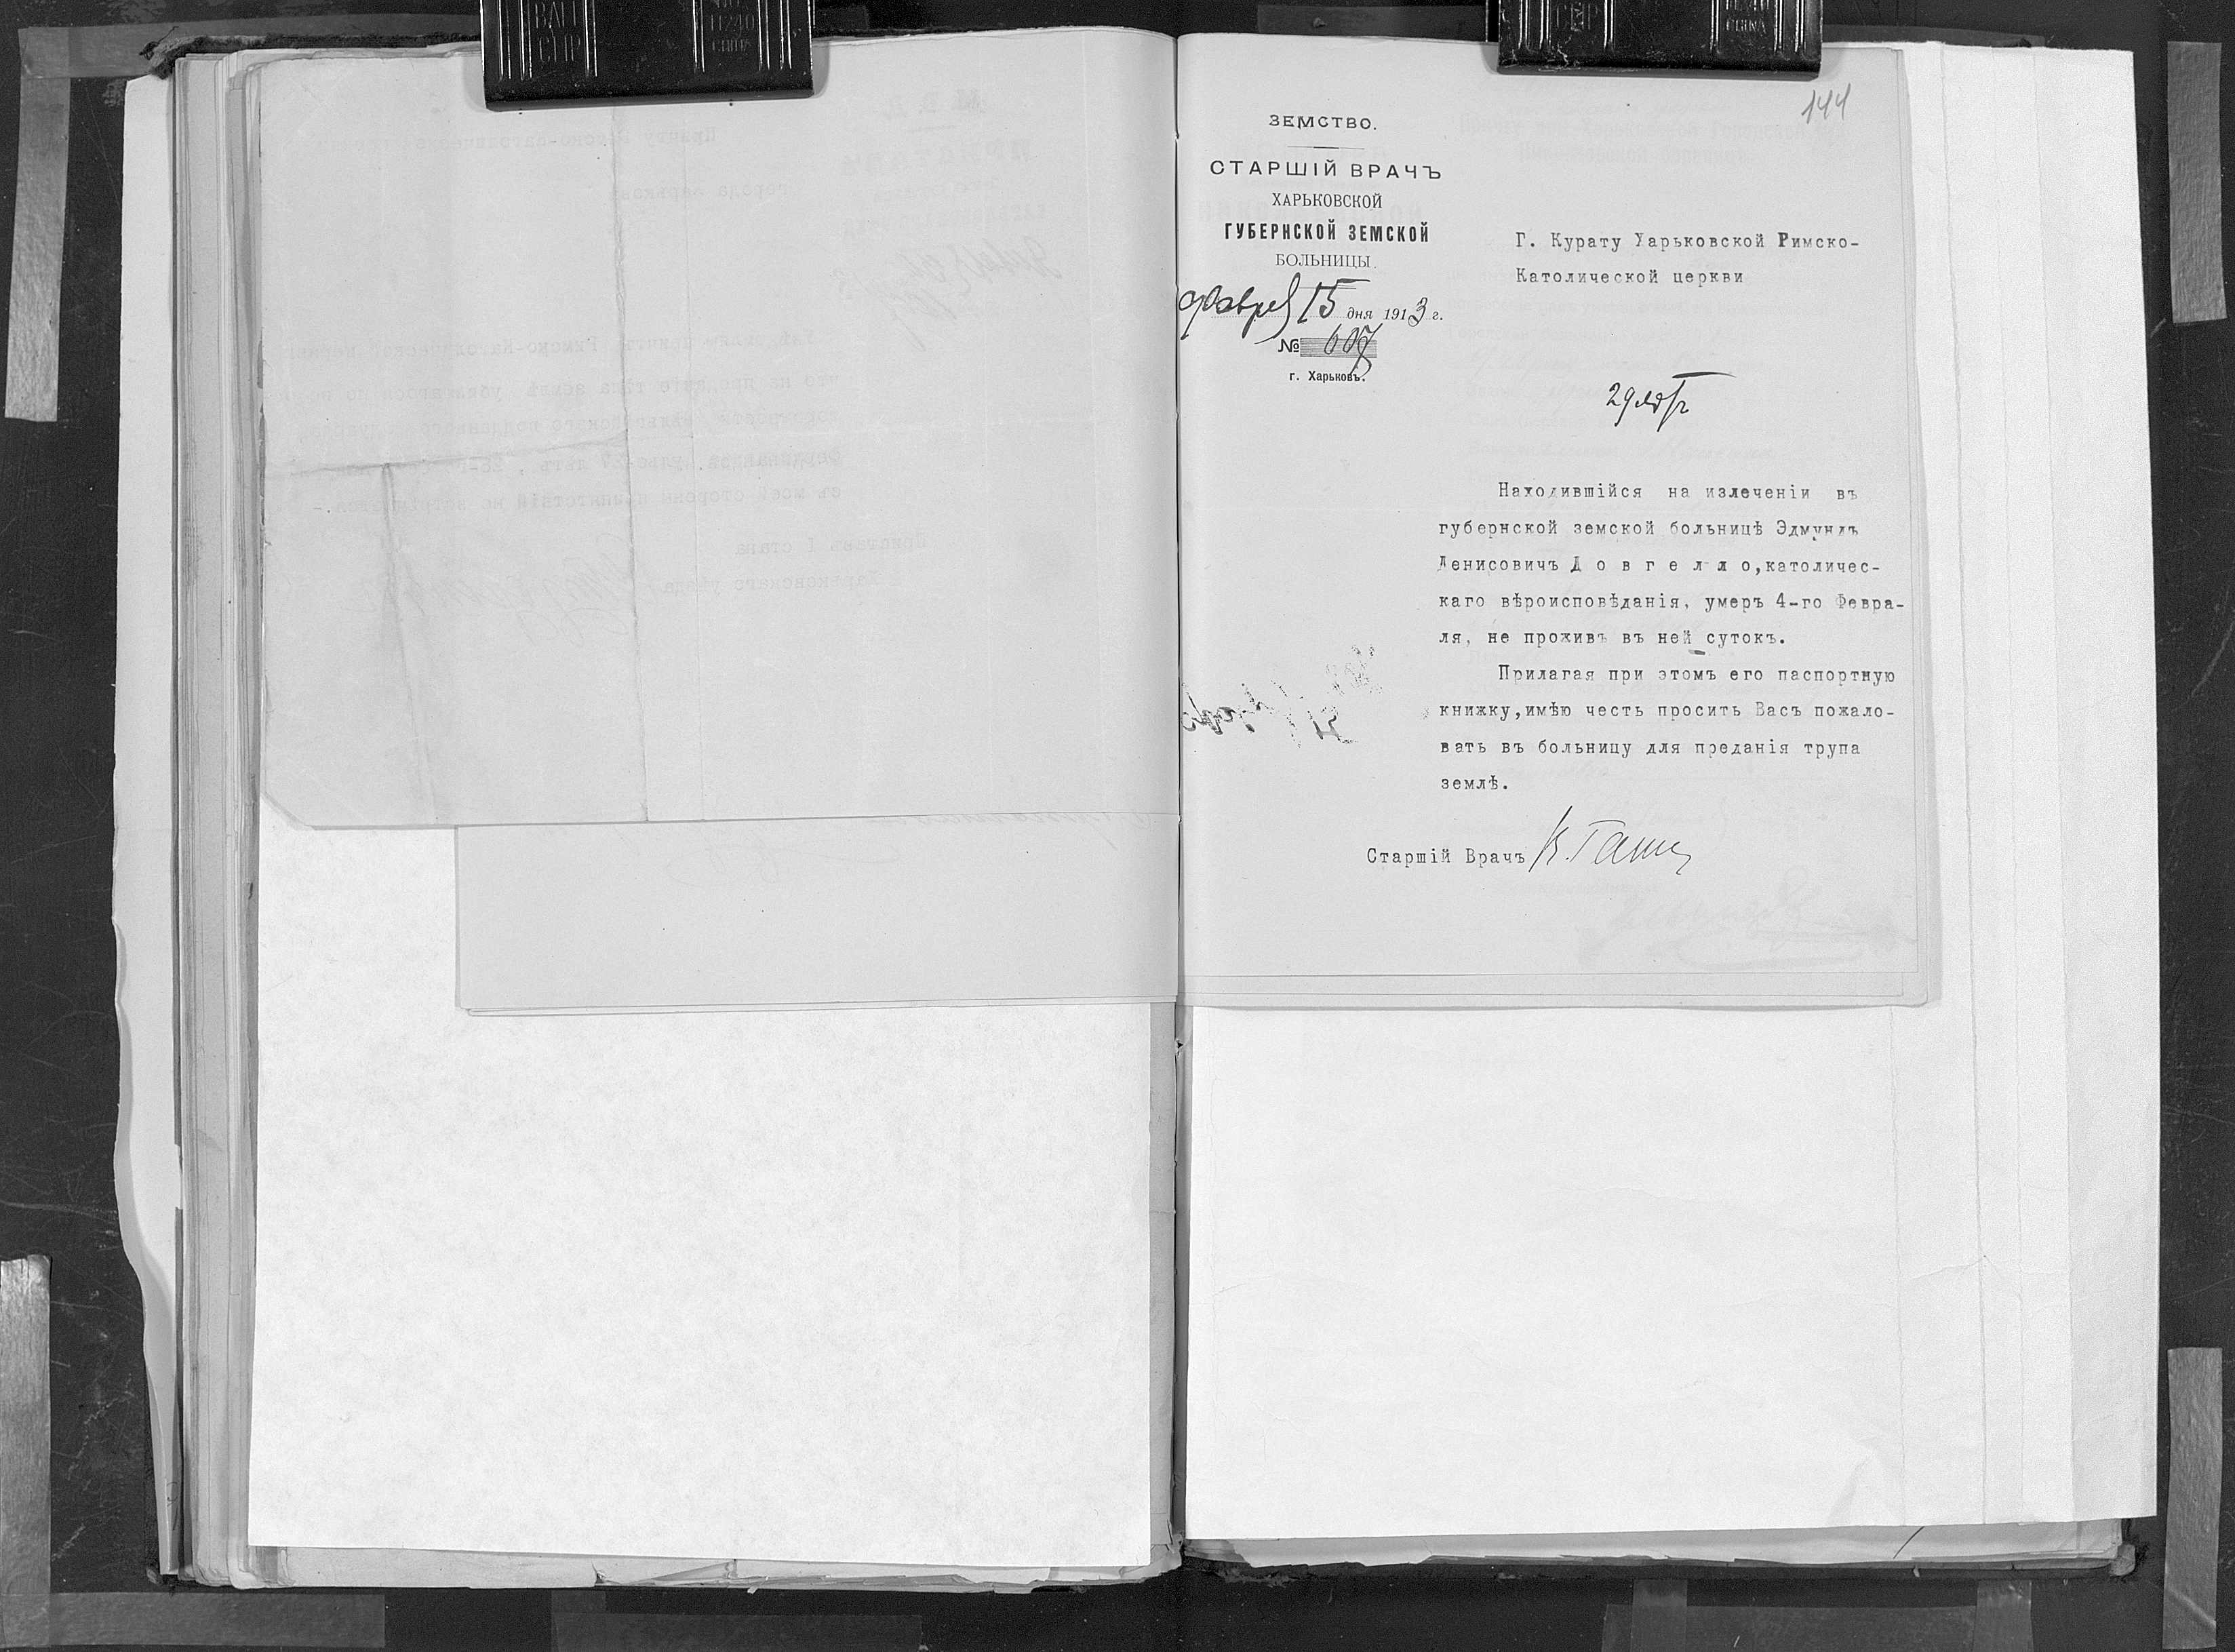 144
ЗЕМСТВО.
СТАРШІЙ ВРАЧЪ
ХАРЬКОВСКОЙ
ГУБЕРНСКОЙ ЗЕМСКОЙ
БОЛЬНИЦЫ.
15 дня 1913 г.
№ 607
г. Харьковъ.
Г. Курату Харьковской Римско-
Католической церкви
29 лѣтъ
Находившійся на излеченіи въ
губернской земской больницѣ Эдмундъ
Денисовичъ Д о в г е л л о, католичес-
каго вѣроисповѣданія, умеръ 4-го Февра-
ля, не проживъ въ ней сутокъ.
Прилагая при этомъ его паспортную
книжку, имѣю честь просить Васъ пожало-
вать въ больницу для преданія трупа
землѣ.
Старшій Врачъ